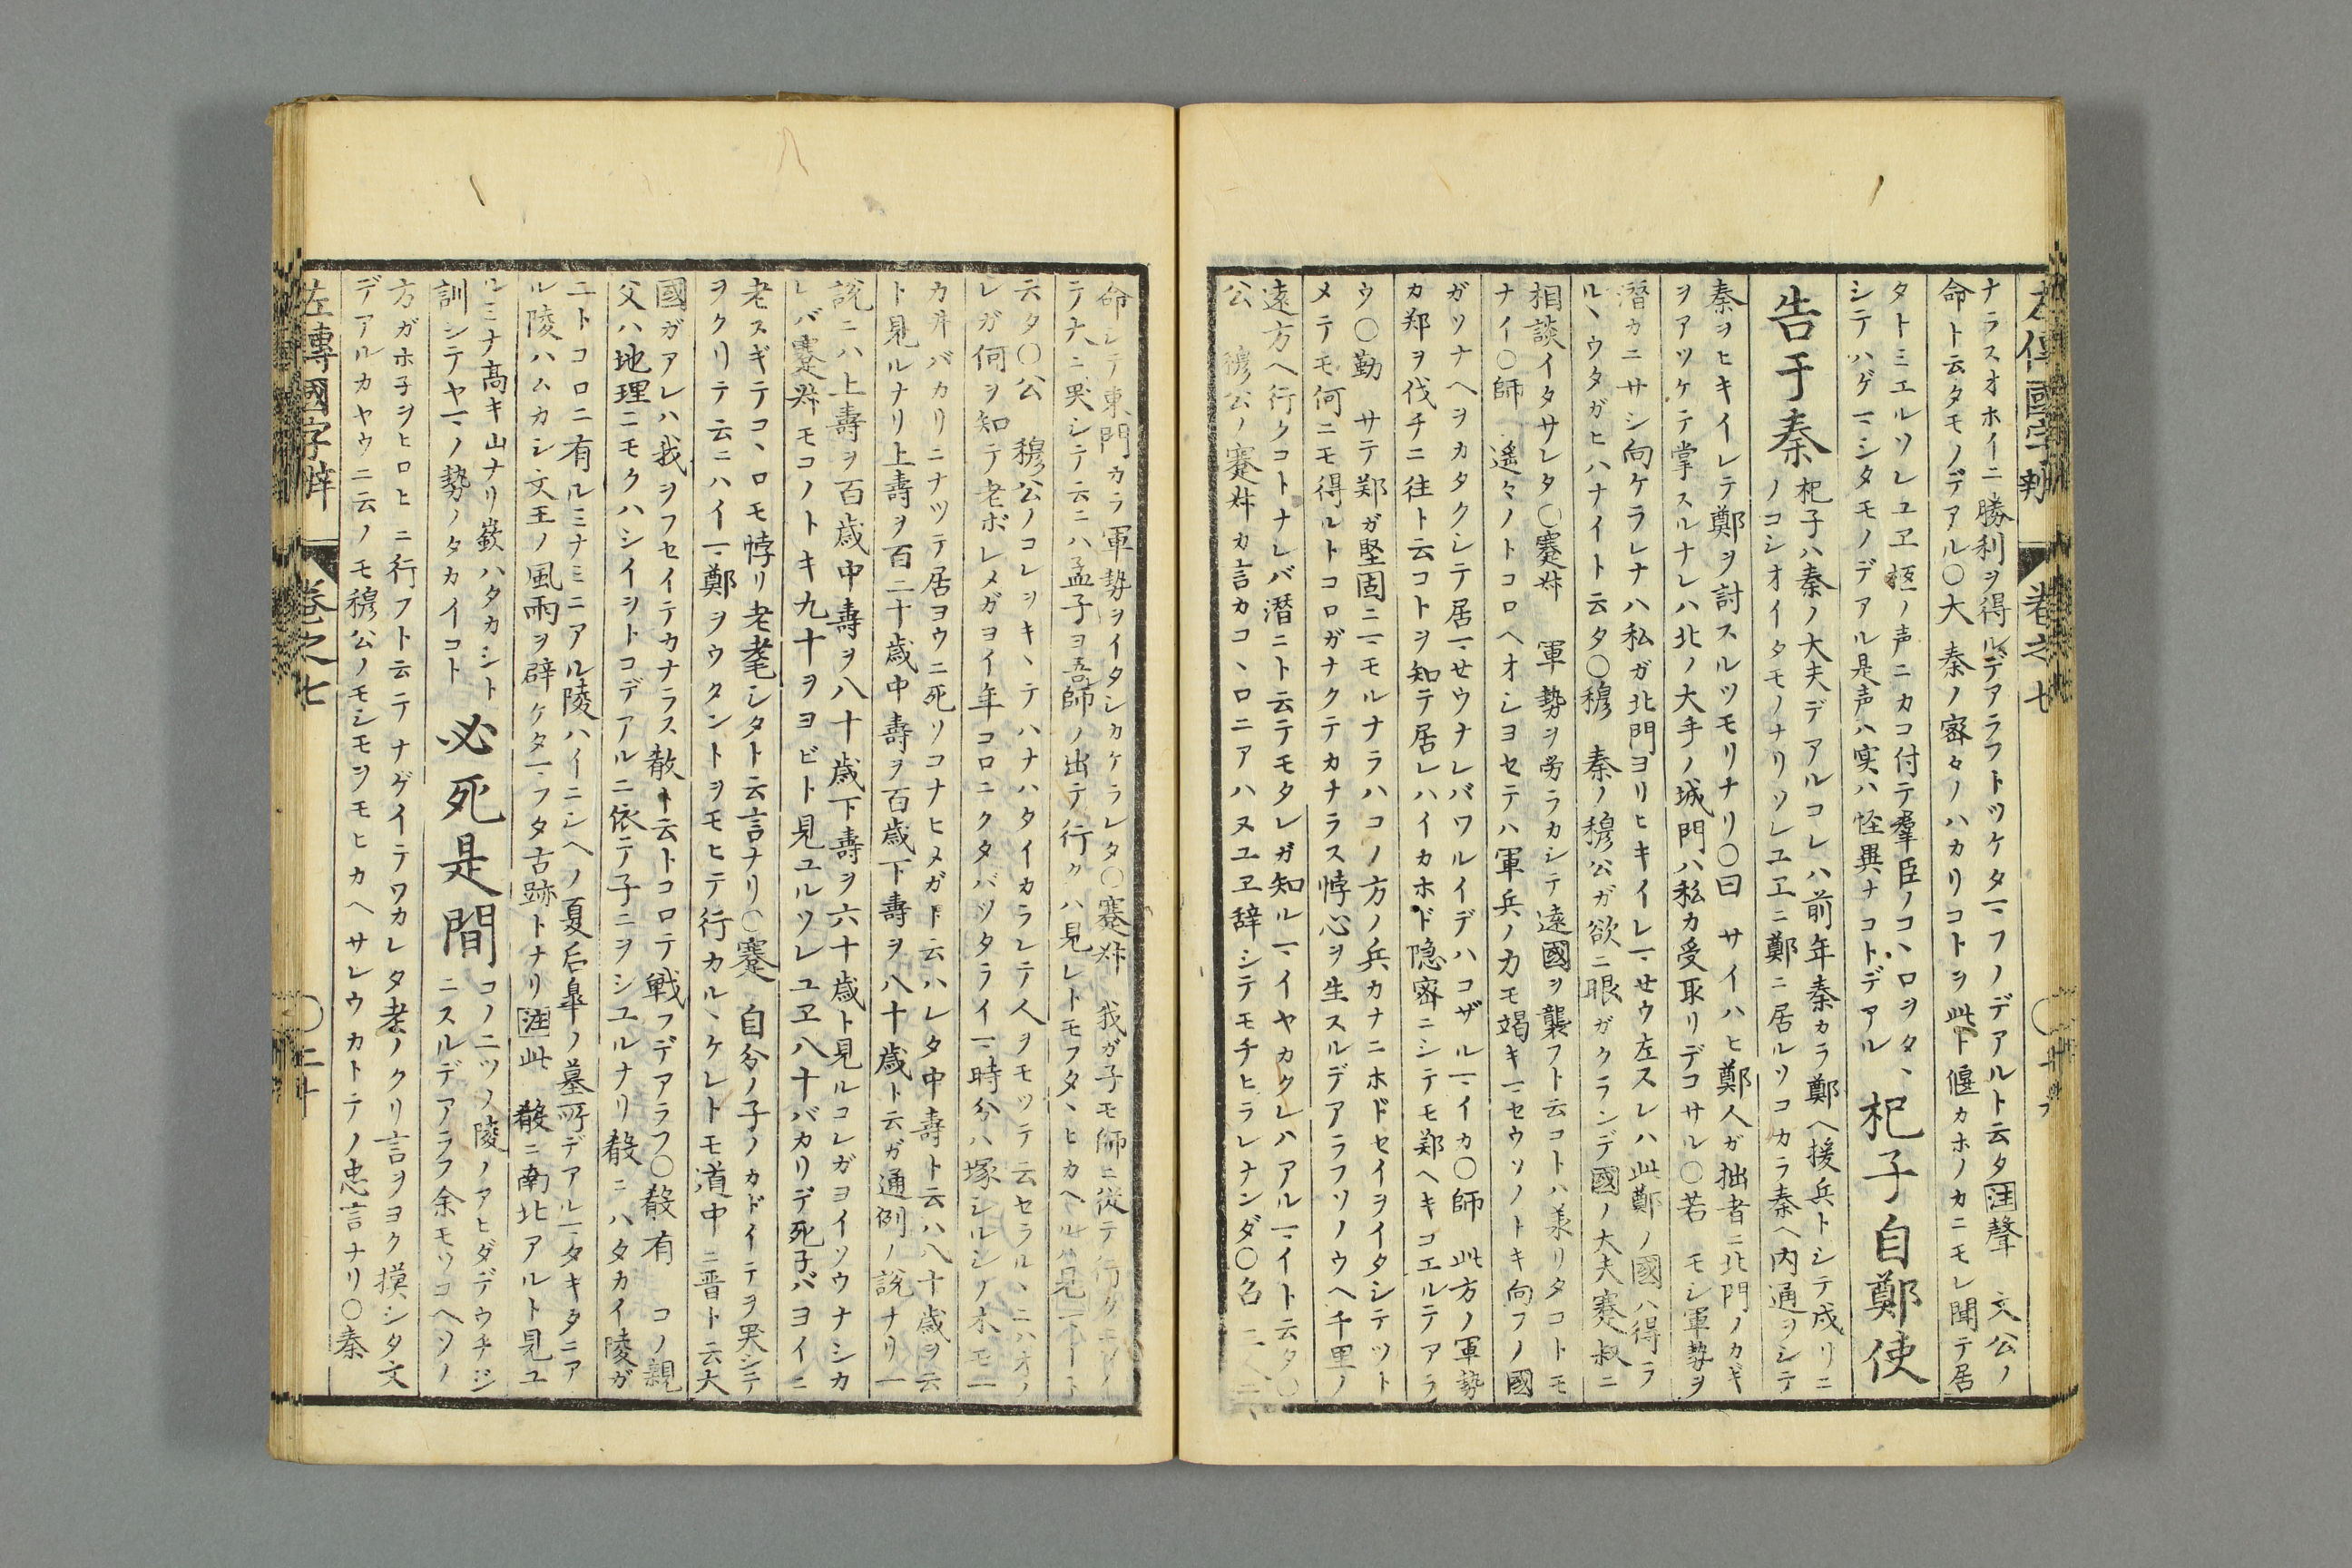 左傳國字辨 卷之七
ナラスオホイニ勝利ヲ得ルデアラフトツケタマフノデアルト云タ注聲 文公ノ
命ト云タモノデアル〇大 秦ノ密々ノハカリコトヲ此下偃カホノカニモレ聞テ居
タトミエルソレユヱ柩ノ声ニカコ付テ羣臣ノコヽロヲタヽ
シテハゲマシタモノデアル是声ハ実ハ怪異ナコトデアル
杞子自鄭使
告于秦
杞子ハ秦ノ大夫デアルコレハ前年秦カラ鄭ヘ援兵トシテ戍リニ
ノコシオイタモノナリソレユヱニ鄭ニ居ルソコカラ秦ヘ内通ヲシテ
秦ヲヒキイレテ鄭ヲ討スルツモリナリ〇曰 サイハヒ鄭人ガ拙者ニ北門ノカギ
ヲアツケテ掌スルナレハ北ノ大手ノ城門ハ私カ受取リデコサル〇若 モシ軍勢ヲ
潛カニサシ向ケラレナハ私ガ北門ヨリヒキイレマせウ左スレハ此鄭ノ國ハ得ラ
ルヽウタガヒハナイト云タ〇穆 秦ノ穆公ガ欲ニ眼ガクランデ國ノ大夫蹇叔ニ
相談イタサレタ〇蹇叔 軍勢ヲ労ラカシテ遠國ヲ襲フト云コトハ承リタコトモ
ナイ〇師 遙々ノトコロヘオシヨセテハ軍兵ノ力モ竭キマセウソノトキ向フノ國
ガソナヘヲカタクシテ居マせウナレバワルイデハコザルマイカ〇師 此方ノ軍勢
カ郑ヲ伐チニ往ト云コトヲ知テ居レハイカホド隐密ニシテモ郑ヘキコエルテアラ
ウ〇勤 サテ郑ガ堅固ニマモルナラハコノ方ノ兵カナニホドセイヲイタシテツト
メテモ何ニモ得ルトコロガナクテカナラス悖心ヲ生スルデアラフソノウヘ千里ノ
遠方ヘ行クコトナレバ潛ニト云テモタレガ知ルマイヤカクレハアルマイト云タ〇
公 穆公ノ蹇叔カ言カコヽロニアハヌユヱ辞シテモチヒラレナンダ〇召
命シテ東門カラ軍勢ヲイタシカケラレタ〇蹇叔 我ガ子モ師ニ從テ行クモノ
テ大ニ哭シテ云ニハ孟子ヨ吾師ノ出テ行クハ見レトモフタヽヒカヘルハ見マイト
云タ〇公 穆公ノコレヲキヽテハナハタイカラレテ人ヲモツテ云セラルヽニハオノ
レガ何ヲ知テ老ボレメガヨイ年コロニクタバツタライマ時分ハ塚シルシノ木モ一
カヰバカリニナツテ居ヨウニ死ソコナヒメガト云ハレタ中壽ト云ハ八十歳ヲ云
ト見ルナリ上壽ヲ百二十歳中壽ヲ百歳下壽ヲ八十歳ト云ガ通例ノ説ナリ一
説ニハ上壽ヲ百歳中壽ヲ八十歳下壽ヲ六十歳ト見ルコレガヨイソウナシカ
レバ蹇叔モコノトキ九十ヲヨビト見ユルソレユヱ八十バカリデ死子バヨイニ
老スギテコヽロモ悖リ老耄シタト云言ナリ〇蹇 自分ノ子ノカドイテヲ哭シテ
ヲクリテ云ニハイマ鄭ヲウタントヲモヒテ行カルヽケレトモ道中ニ晋ト云大
國ガアレハ我ヲフセイテカナラス殽ト云トコロテ戦フデアラフ〇殽有 コノ親
父ハ地理ニモクハシイヲトコデアルニ依テ子ニヲシユルナリ殽ニハタカイ陵ガ
ニトコロニ有ルミナミニアル陵ハイニシヘノ夏后皐ノ墓所デアルマタキタニア
ル陵ハムカシ文王ノ風雨ヲ辟ケタマフタ古跡トナリ注此 殽ニ南北アルト見ユ
ルミナ髙キ山ナリ嶔ハタカシト
訓シテヤマノ勢ノタカイコト
必死是間
コノ二ツノ陵ノアヒダデウチジ
ニスルデアラフ余モソコヘソノ
方ガホ子ヲヒロヒニ行フト云テナゲイテワカレタ老ノクリ言ヲヨク摸シタ文
デアルカヤウニ云ノモ穆公ノモシモヲモヒカヘサレウカトテノ忠言ナリ〇秦
左傳國字辨 卷之七 〇二十